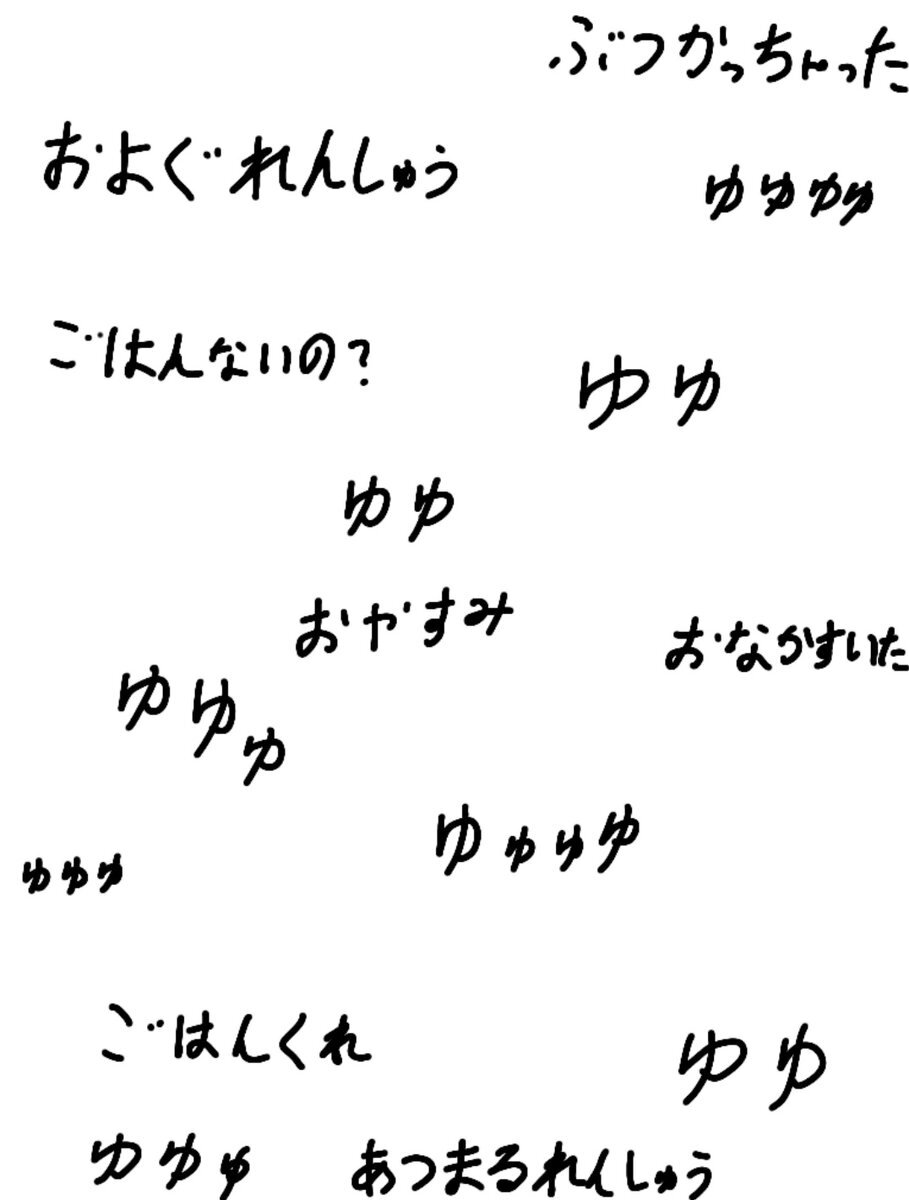 ぶつかっちゃった
およぐれんしゅう
ゆゆゆゆ
ごはんないの?
ゆゆ
ゆゆ
おやすみ
おなかすいた
ゆゆゆ
ゆゅゅゆ
ゅゅゅ
ごはんくれ
ゆゆ
ゆゆゅ
あつまるれんしゅう